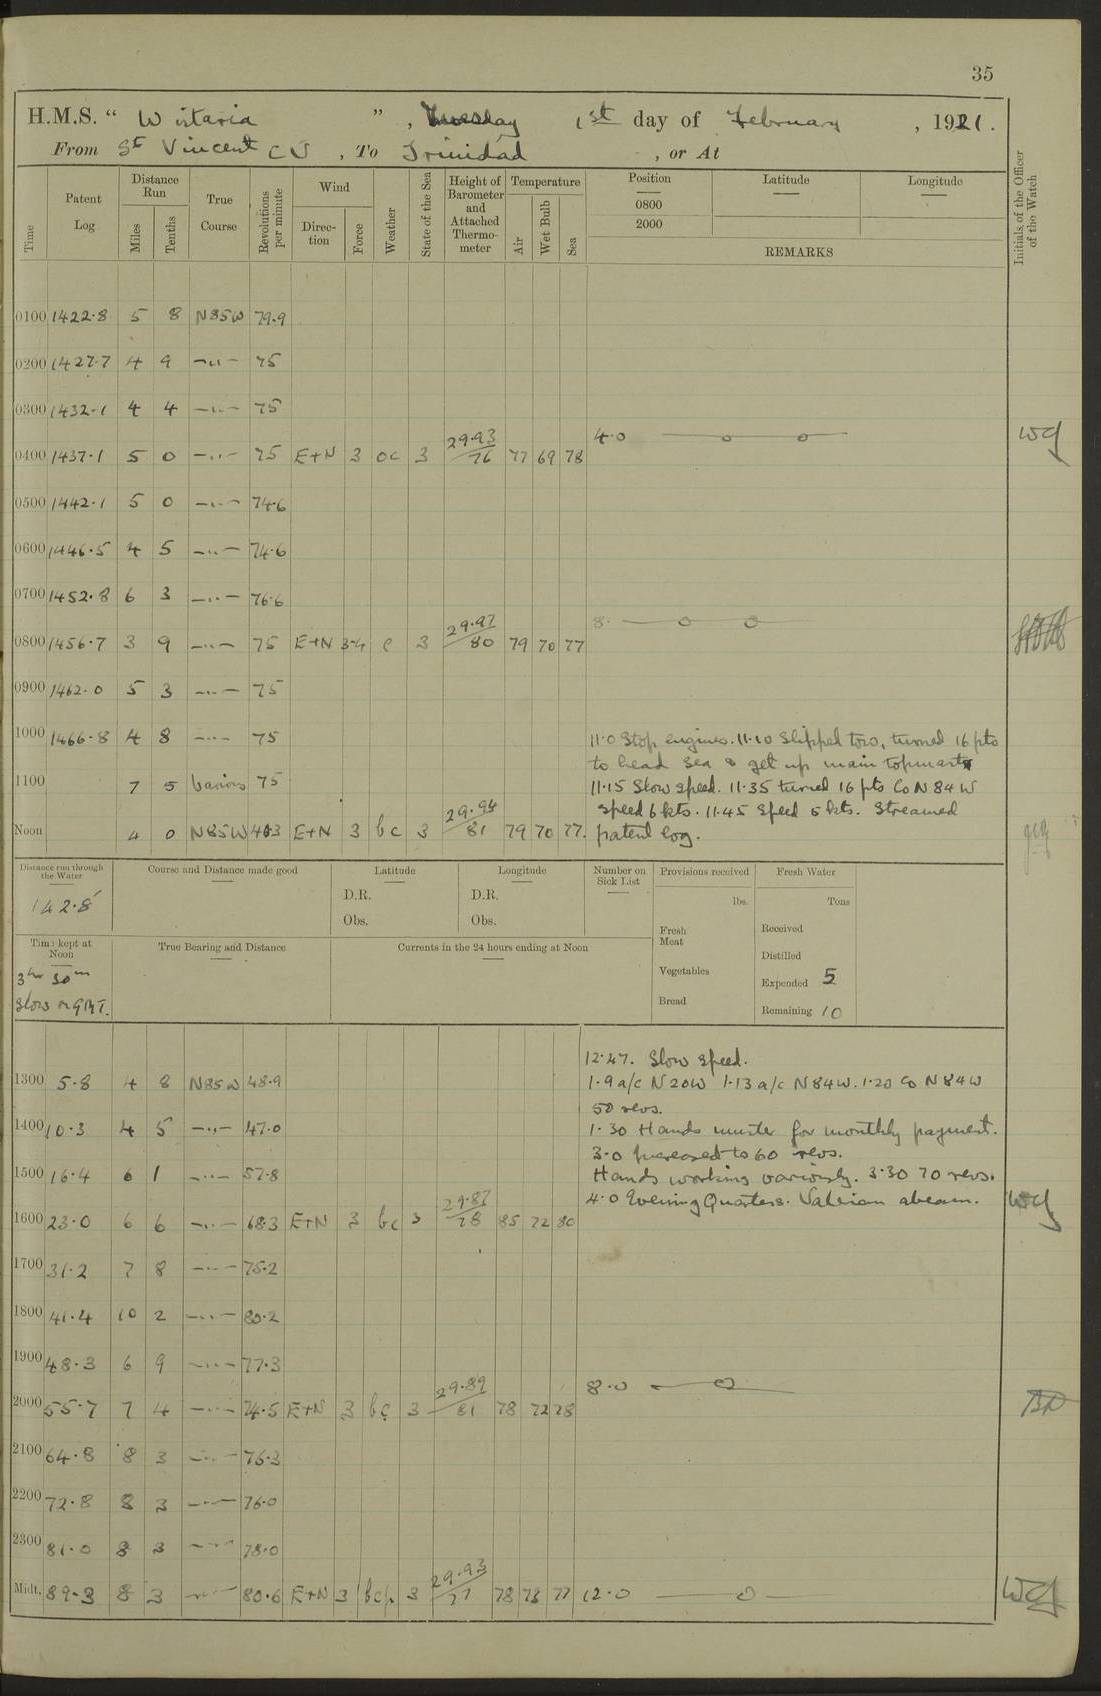 35
H.M.S. " Wistaria ", Tuesday 1st day of February, 1921.
From St Vincent C V, To Trinidad, or At
Time
Patent Log
Distance Run
Miles
Tenths
True Course
Revolutions per minute
Wind
Direction
Force
Weather
State of the Sea
Height of Barometer and Attached Thermometer
Temperature
Air
Wet Bulb
Sea
Position
0800
2000
Latitude
Longitude
REMARKS
Initials of the Officer of the Watch
0100 1422.8 5 8 N85W 79.9
0200 1427.7 4 9 -"- 75
0300 1432.1 4 4 -"- 75
0400 1437.1 5 0 -"- 75 E+N 3 oc 3 29.93/76 77 69 78 4.0 WG
0500 1442.1 5 0 -"- 74.6
0600 1446.5 4 5 -"- 74.6
0700 1452.8 6 3 -"- 76.6
0800 1456.7 3 9 -"- 75 E+N 3-4 c 3 29.97/80 79 70 77 8.
0900 1462.0 5 3 -"- 75
1000 1466.8 4 8 -"- 75
1100 7 5 Various 75
Noon 4 0 N85W 403 E+N 3 bc 3 29.94/81 79 70 77.
11.0 Stop engines. 11.10 Slipped tow, turned 16 pts
to head sea & get up main topmast
11.15 Slow speed. 11.35 turned 16 pts Co N 84 W
speed 6 kts. 11.45 Speed 5 kts. Streamed
patent log.
Distance run through the Water
142.8
Course and Distance made good
Latitude
D.R.
Obs.
Longitude
D.R.
Obs.
Number on Sick List
Provisions received
lbs.
Fresh Meat
Vegetables
Bread
Fresh Water
Tons
Received
Distilled
Expended 5
Remaining 10
Time kept at Noon
3hr 30m
slow on GMT.
True Bearing and Distance
Currents in the 24 hours ending at Noon
12.47. Slow speed.
1.9 a/c N20W 1.13 a/c N84W. 1.20 Co N84W
50 revs.
1.30 Hands muster for monthly payment.
3.0 Increased to 60 revs.
Hands working variously. 3.30 70 revs.
4.0 Evening Quarters. Valerian abeam.
1300 5.8 4 8 N85W 48.9
1400 10.3 4 5 -"- 47.0
1500 16.4 6 1 -"- 57.8
1600 23.0 6 6 -"- 68.3 E+N 3 bc 3 29.87/78 85 72 80 WG
1700 31.2 7 8 -"- 75.2
1800 41.4 10 2 -"- 80.2
1900 48.3 6 9 -"- 77.3
2000 55.7 7 4 -"- 74.5 E+N 3 bc 3 29.89/81 78 72 78 8.0
2100 64.8 8 3 -"- 76.3
2200 72.8 8 3 -"- 76.0
2300 81.0 8 3 -"- 78.0
Midt. 89.3 8 3 -"- 80.6 E+N 3 bcp. 3 29.93/77 78 73 77 12.0 WG